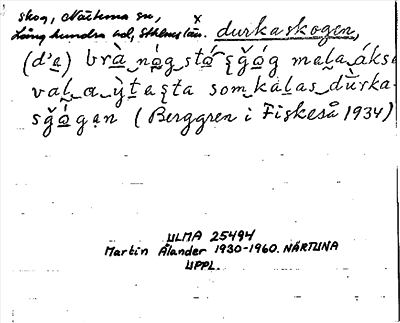 skog, Närtuna sn,
Långhundra hd, Sthlms län. durkaskogen,
(d'a) brà nóg stó sğóg mala áksa
val a ỳtasta som kalas dùrka-
sğógan (Berggren i Fiskeså 1934)
ULMA 25494
Martin Ålander 1930-1960. NÄRTUNA
UPPL.